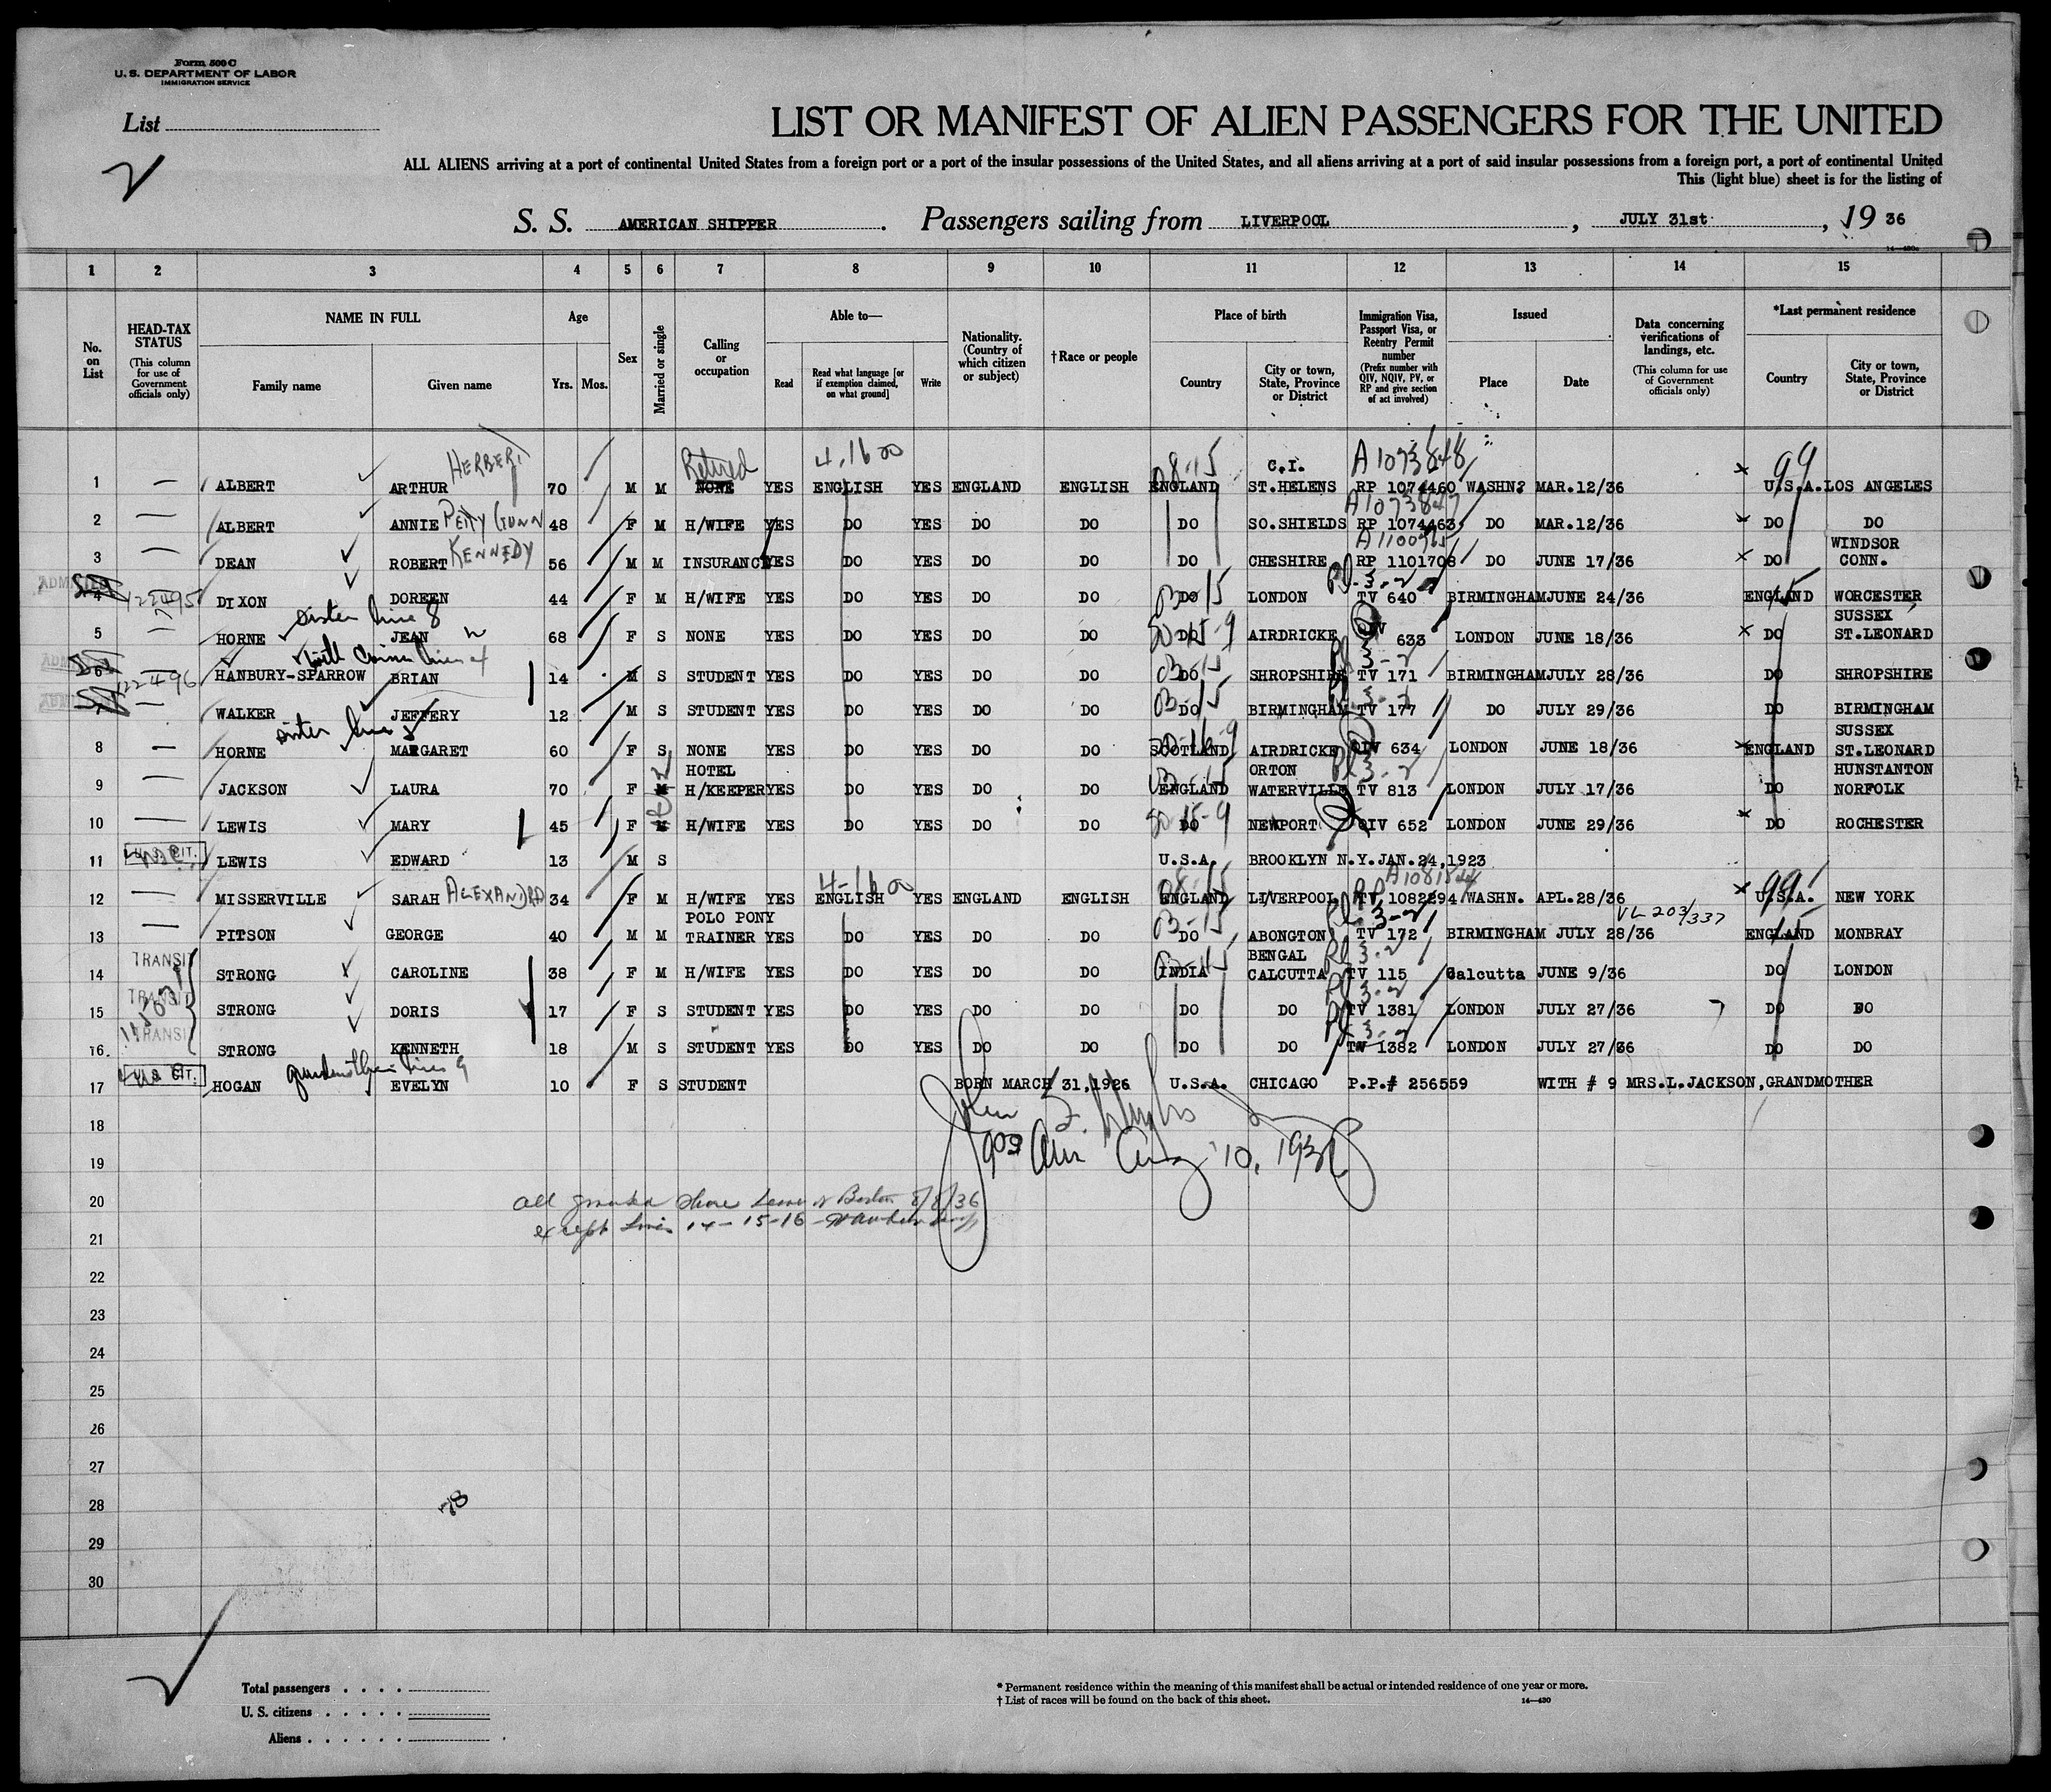 Form 500 C
U. S. DEPARTMENT OF LABOR
IMMIGRATION SERVICE
List
2
LIST OR MANIFEST OF ALIEN PASSENGERS FOR THE UNITED
ALL ALIENS arriving at a port of continental United States from a foreign port or a port of the insular possessions of the United States, and all aliens arriving at a port of said insular possessions from a foreign port, a port of continental United
This (light blue) sheet is for the listing of
S. S. AMERICAN SHIPPER. Passengers sailing from LIVERPOOL, JULY 31st, 19 36
1 2 3 4 5 6 7 8 9 10 11 12 13 14 15
No. on List
HEAD-TAX STATUS (This column for use of Government officials only)
NAME IN FULL
Family name
Given name
Age
Yrs. Mos.
Sex
Married or single
Calling or occupation
Able to—
Read
Read what language [or if exemption claimed, on what ground]
Write
Nationality. (Country of which citizen or subject)
†Race or people
Place of birth
Country
City or town, State, Province or District
Immigration Visa, Passport Visa, or Reentry Permit number (Prefix number with QIV, NQIV, PV, or RP and give section of act involved)
Issued
Place
Date
Data concerning verifications of landings, etc. (This column for use of Government officials only)
*Last permanent residence
Country
City or town, State, Province or District
HERBERT Retired 4-16 00 C.I. A1073848 99
1 ALBERT ARTHUR 70 M M NONE YES ENGLISH YES ENGLAND ENGLISH ENGLAND ST.HELENS RP 1074460 WASHN. MAR.12/36 U.S.A. LOS ANGELES
A1073847
2 ALBERT ANNIE PETTY GUNN 48 F M H/WIFE YES DO YES DO DO DO SO.SHIELDS RP 1074463 DO MAR.12/36 DO DO
3 DEAN ROBERT KENNEDY 56 M M INSURANCE YES DO YES DO DO DO CHESHIRE RP 1101708 DO JUNE 17/36 DO WINDSOR CONN.
4 122495 DIXON DOREEN 44 F M H/WIFE YES DO YES DO DO DO LONDON TV 640 BIRMINGHAM JUNE 24/36 ENGLAND WORCESTER
sister line 8
5 HORNE JEAN 68 F S NONE YES DO YES DO DO DO AIRDRICKE QIV 633 LONDON JUNE 18/36 DO SUSSEX ST.LEONARD
6 122496 HANBURY-SPARROW BRIAN 14 M S STUDENT YES DO YES DO DO DO SHROPSHIRE TV 171 BIRMINGHAM JULY 28/36 DO SHROPSHIRE
7 WALKER JEFFERY 12 M S STUDENT YES DO YES DO DO DO BIRMINGHAM TV 177 DO JULY 29/36 DO BIRMINGHAM
sister line 5
8 HORNE MARGARET 60 F S NONE YES DO YES DO DO SCOTLAND AIRDRICKE QIV 634 LONDON JUNE 18/36 ENGLAND SUSSEX ST.LEONARD
9 JACKSON LAURA 70 F M HOTEL H/KEEPER YES DO YES DO DO ENGLAND ORTON WATERVILLE TV 813 LONDON JULY 17/36 DO HUNSTANTON NORFOLK
10 LEWIS MARY 45 F M H/WIFE YES DO YES DO DO DO NEWPORT QIV 652 LONDON JUNE 29/36 DO ROCHESTER
11 U.S. CIT. LEWIS EDWARD 13 M S U.S.A. BROOKLYN N.Y. JAN.24,1923
4-16 00 99
12 MISSERVILLE SARAH ALEXANDRA 34 F M H/WIFE YES ENGLISH YES ENGLAND ENGLISH ENGLAND LIVERPOOL 1082294 WASHN. APL.28/36 U.S.A. NEW YORK
VL 203/337
13 PITSON GEORGE 40 M M POLO PONY TRAINER YES DO YES DO DO DO ABONGTON TV 172 BIRMINGHAM JULY 28/36 ENGLAND MONBRAY
14 TRANSIT STRONG CAROLINE 38 F M H/WIFE YES DO YES DO DO INDIA BENGAL CALCUTTA TV 115 Calcutta JUNE 9/36 DO LONDON
15 TRANSIT STRONG DORIS 17 F S STUDENT YES DO YES DO DO DO DO TV 1381 LONDON JULY 27/36 DO DO
16. TRANSIT STRONG KENNETH 18 M S STUDENT YES DO YES DO DO DO DO TV 1382 LONDON JULY 27/36 DO DO
grandmother line 9
17 U.S. CIT. HOGAN EVELYN 10 F S STUDENT BORN MARCH 31,1926 U.S.A. CHICAGO P.P.# 256559 WITH # 9 MRS.L.JACKSON,GRANDMOTHER
18
19 Aug 10, 1936
20 all granted Shore Leave at Boston 8/8/36
21 except Lines 14-15-16
22
23
24
25
26
27
28 78
29
30
Total passengers . . . .
U. S. citizens . . . . . .
Aliens . . . . . .
* Permanent residence within the meaning of this manifest shall be actual or intended residence of one year or more.
† List of races will be found on the back of this sheet. 14—430